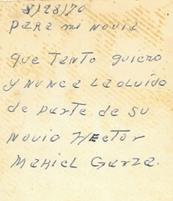 8/28/70
PARA mi NOVIA
que TANTO quiero
y NUNCA LA OLVIDO
de PARTE de SU
NOVIO HECTOR
MANIEL GARZA.